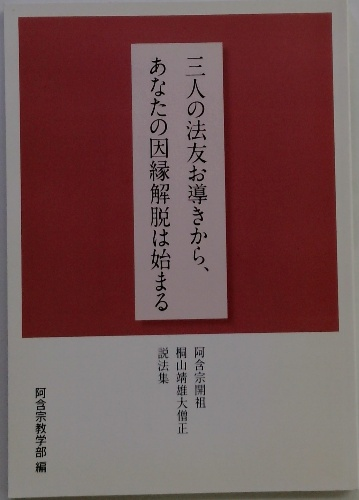 三人の法友お導きから、
あなたの因縁解脱は始まる
阿含宗開祖
桐山靖雄大僧正
説法集
阿含宗教学部 編